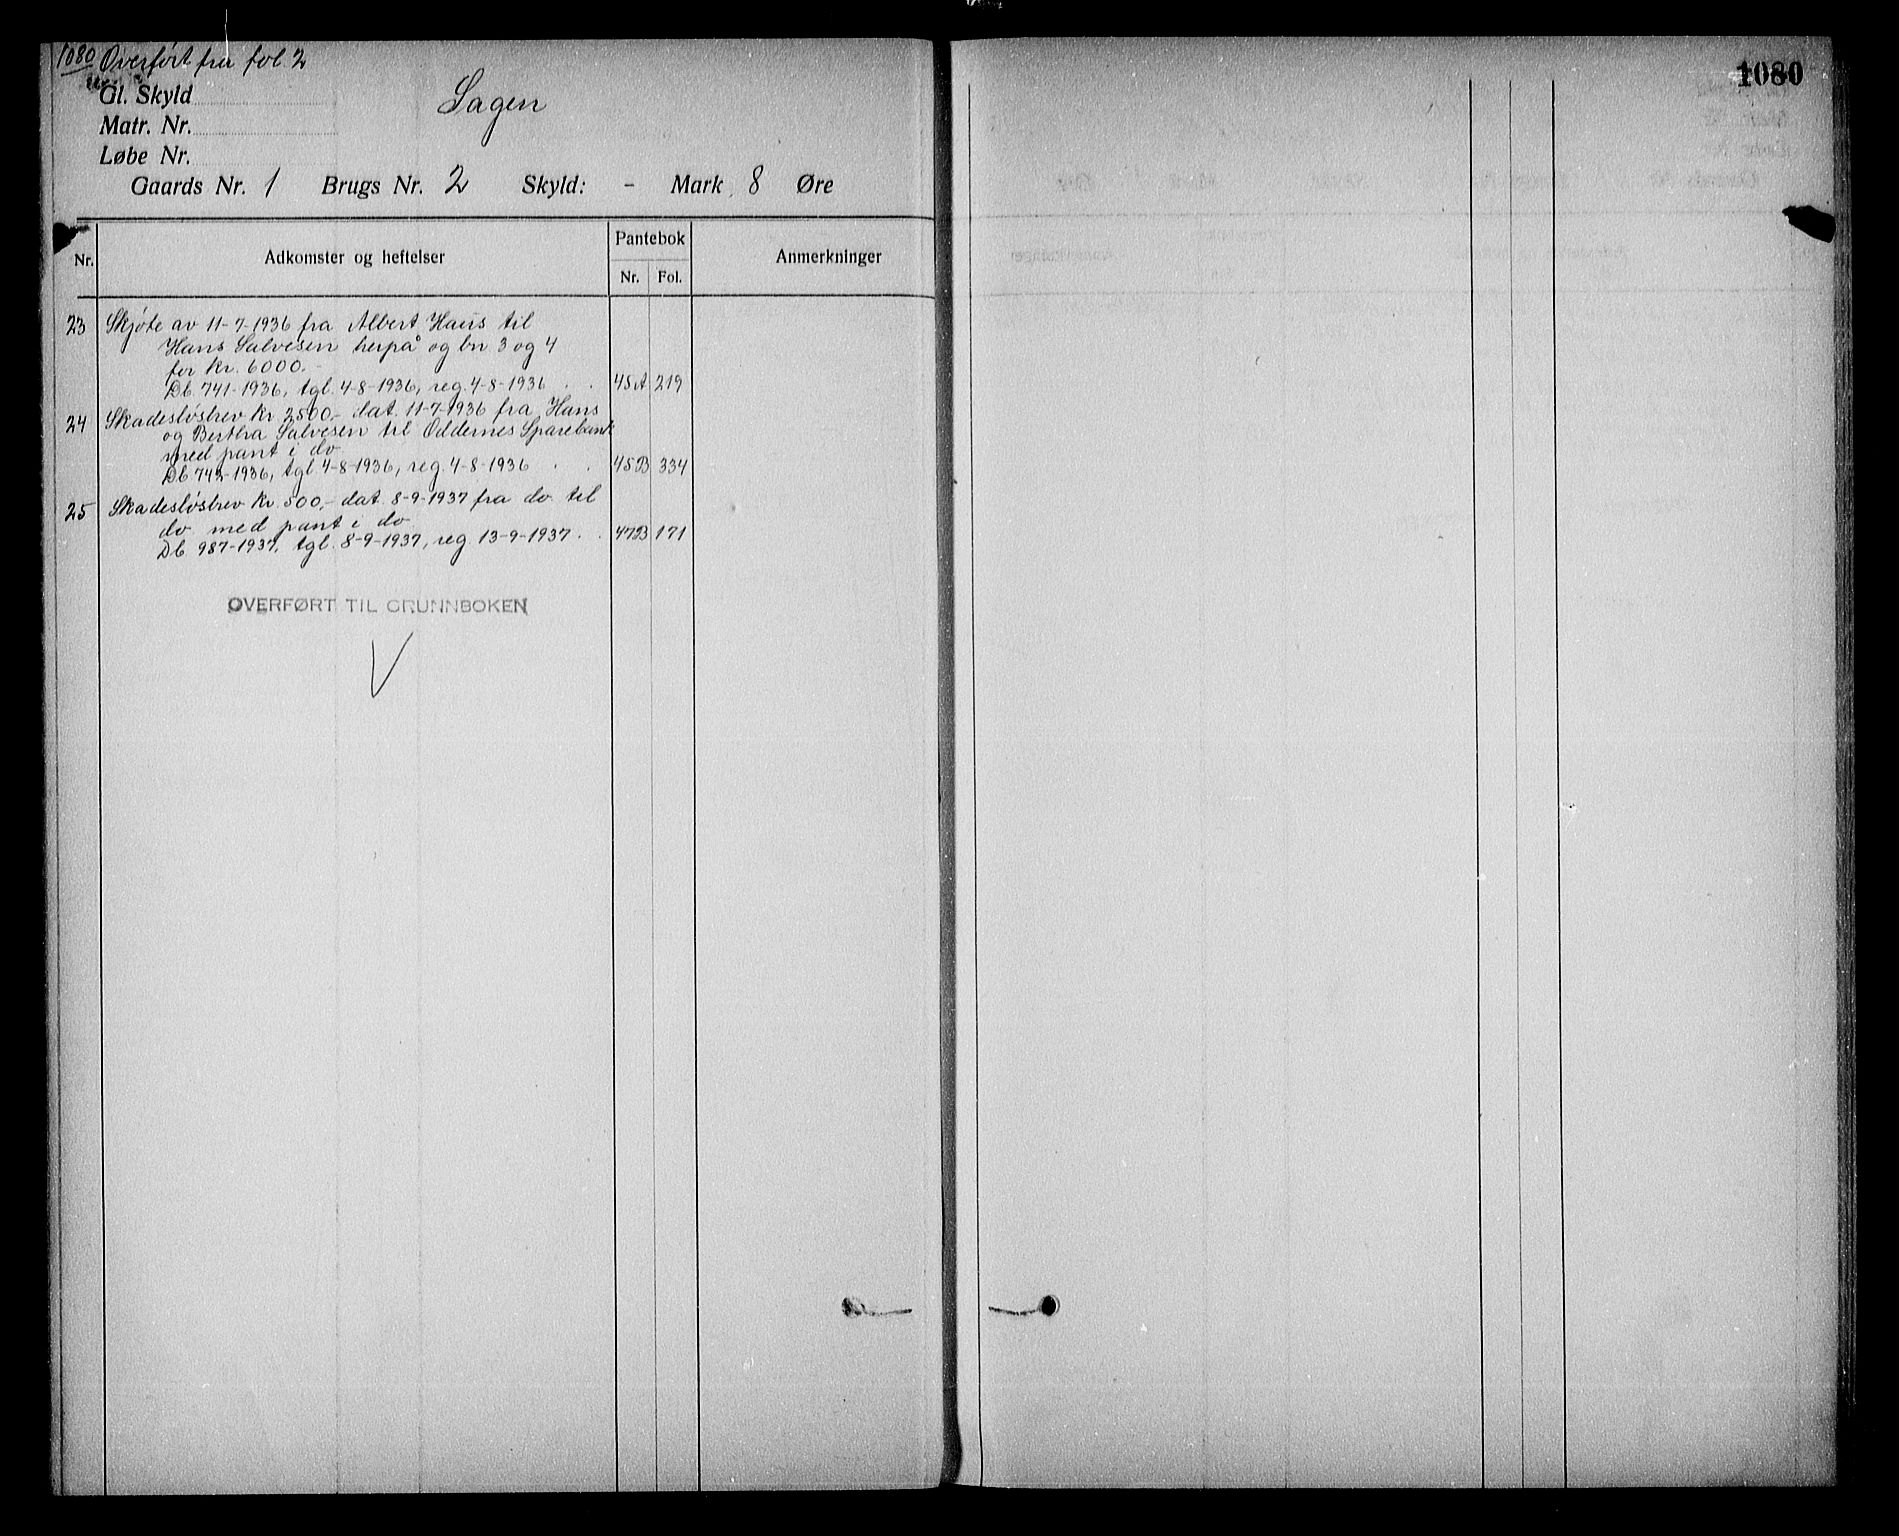 1080 Overført fra fol. 2
1080
Gl. Skyld
Sagen
Matr. Nr.
Løbe Nr.
Gaards Nr. 1 Brugs Nr. 2 Skyld: - Mark 8 Øre
Nr. Adkomster og heftelser Pantebok Anmerkninger
Nr. Fol.
23 Skjøte av 11-7-1936 fra Albert Haus til
Hans Salvesen herpå og bn 3 og 4
for kr. 6000.-
Db. 741-1936, tgl. 4-8-1936, reg. 4-8-1936 . . 45A 219
24 Skadesløsbrev kr 2500,- dat. 11-7-1936 fra Hans
og Bertha Salvesen til Oddernes Sparebank
med pant i do
Db 742-1936, tgl 4-8-1936, reg. 4-8-1936 . . 45B 334
25 Skadesløsbrev kr. 500,- dat. 8-9-1937 fra do. til
do med pant i do
Db 987-1937, tgl. 8-9-1937, reg. 13-9-1937 . . 47B 171
OVERFØRT TIL GRUNNBOKEN